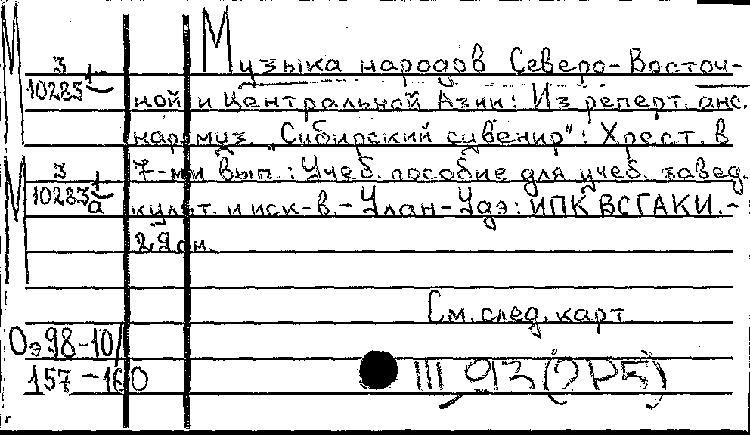 М
Музыка народов Северо-Восточ-
3
10285
ной и Центральной Азии: Из реперт. анс.
нар. муз. "Сибирский сувенир": Хрест. в
7-ми вып.: Учеб. пособие для учеб. завед.
М
3
10283 а
культ. и иск-в. - Улан-Удэ: ИПК ВСГАКИ. -
29 см.
См. след. карт.
Оэ98-10/
157-160
III 93(2Р5)